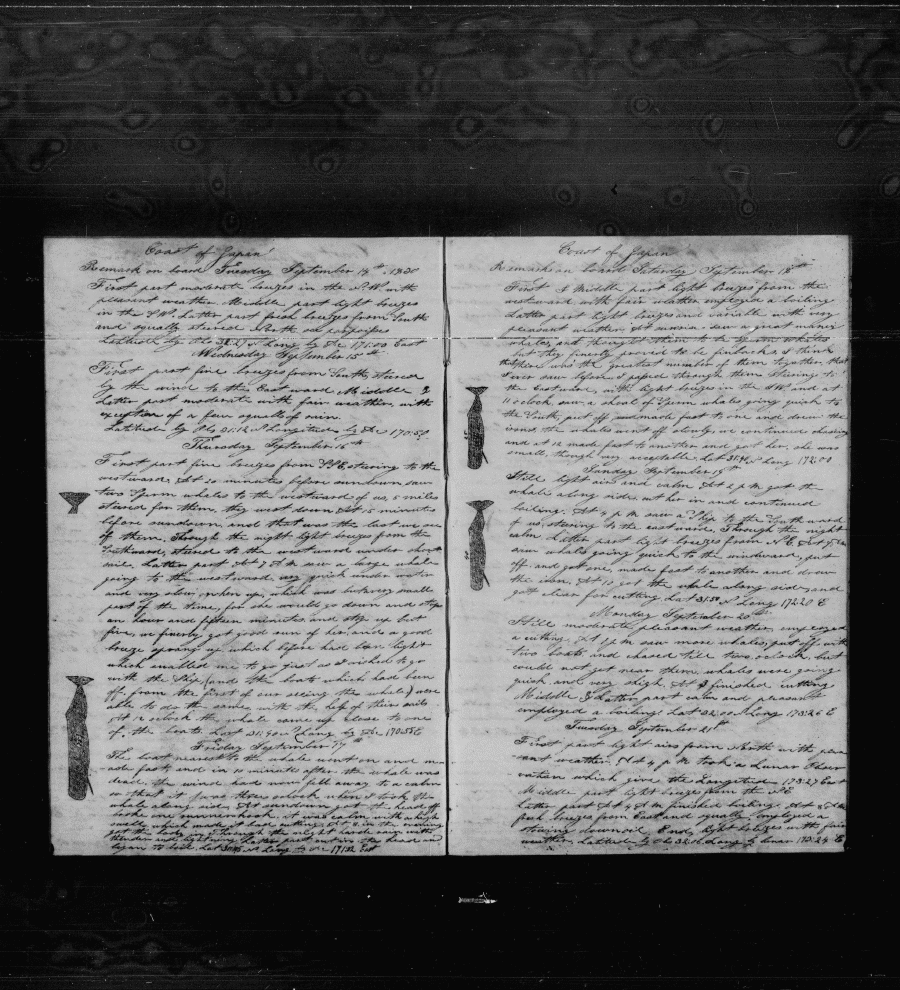 Coast of Japan
Remark on board Tuesday September 14th 1830
First part moderate breezes in the N.W. with
pleasant weather. Middle part light breezes
in the S.W. Latter part fresh breezes from South
and squally stered North our porposes
Latitude by Obs N Long by De 171:00 East
Wednesday September 15th
First part fine breezes from South, stered
by the wind to the Eastward Middle &
Latter part moderate with fair weather, with
exception of a few squalls of rain.
Latitude by Obs 31:12 N Longitude by De 170:50
Thursday September 16th
First part fine breezes from stering to the
westward. At 20 minutes before sundown saw
two Sperm whales to the westward of us, 5 miles
stered for them, they went down At 15 minutes
before sundown, and that was the last we see
of them. Through the night light breezes from the
Southward, stered to the westward under short
sails. Latter part At 7 A M saw a large whale
going to the westward very quick under water
and very slow, when up, which was but very small
part of the time, for she would go down and stop
an hour and fifteen minutes and stop up but
five, we finerly got good run of her, and a good
breeze sprang up which before had been light
which enabled me to go just as I wished to go
with the Ship, (and the boats which had been
off, from the first of our seeing the whale) were
able to do the same with the help of theirs sails.
At 12 oclock the whale came up close to one
of the boats. Lat 31:40 N Long by De 170:55 E
Friday September 17th
The boat nearest to the whale went on and m-
ade fast, and in 10 minute after the whale was
dead, the wind here now fell away to a calm
so that it was three oclock when I took the
whale along side. At sundown got the head off
broke one it was calm with a high
swell which made it bad cutting. At 8 in the evening
got the body in, Through the night hard rain with
thunder and lightning Latter part cut in the head and
began to boil Lat N Long by De 171:32 East
Coast of Japan
Remark on board Saturday September 18th
First & Middle part light breezes from the
westward with fair wather employed a boiling
Latter part light breezes and variable with very
pleasant weather. At sunrise saw a great maney
whales, and thought them to be Sperm Whales
but they finerly proved to be finbacks, I think
that there was the greatest number of them together that
I ever saw before, I passed through them stering to
the Eastward, with light breezes in the SW. and at
11 oclock saw a sheal of Sperm whales going quick to
the South, put off and made fast to one and drew the
irons, the whales went off slowly, we continued chasing
and at 12 made fast to another and got her, she was
small, though very acceptable. Lat 31:49 N Long 172:00
Sunday September 19th
Still light airs and calm At 2 P M got the
whale along side, cut her in and continued
boiling. At 4 P M saw a Ship to the Southward
of us, stering to the eastward, Through the night
calm Latter part light breezes from N.E. At
saw whales going quick to the windward, put
off and got one, made fast to another and drew
the iron. At 10 got the whale along side, and
got clear for cutting Lat 31:50 N Long 172:20 E
Monday September 20th
Still moderate pleasant weather, employed
a cutting. At 1 P M saw more whales, put off with
two boats and chased till two oclock, but
could not get near them, whales were going
quick and very shigh. At finished cutting
Middle & Latter part calm and pleasant
employed a boiling Lat 32:00 N Long 173:26 E
Tuesday September 21st
First part light airs from North with plea-
sant weather. At 4 P M took a Lunar Obser-
vation which give the Longetude 173:27 East
Middle part light breezes from the S.E
Latter part At 4 A M finished boiling. At
fresh breezes from East and squally employed a
stowing down oil. Ends light breezes with fair
weather, Latitude by Obs 32:06 Long by lunar 173:24 E